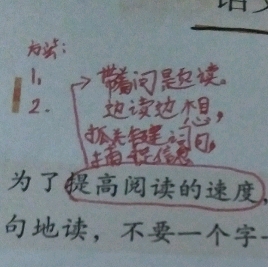 语文
方法：
1、带着问题读。
2. 边读边想，
抓关键词句，
捕捉信息
为了提高阅读的速度，
句地读，不要一个字一